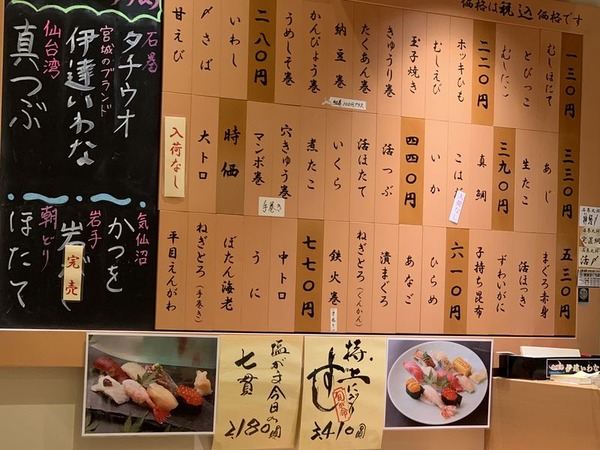 価格は税込価格です
一三〇円
むしほたて
とびっこ
むしだこ
二二〇円
ホッキひも
むしえび
玉子焼き
きゅうり巻
たくあん巻
納豆巻
かんぴょう巻
うめしそ巻
二八〇円
いわし
〆さば
甘えび
三三〇円
あじ
生たこ
三九〇円
真鯛
こはだ
いか
四四〇円
活つぶ
活ほたて
いくら
煮たこ
穴きゅう巻
マンボ巻
手巻き
時価
大トロ
入荷なし
五三〇円
まぐろ赤身
活ほっき
ずわいがに
子持ち昆布
六一〇円
ひらめ
あなご
漬まぐろ
ねぎとろ(ぐんかん)
鉄火巻
七七〇円
中トロ
うに
ぼたん海老
ねぎとろ(手巻き)
平目えんがわ
石巻
タチウオ
宮城のブランド
伊達いわな
仙台湾
真つぶ
気仙沼
かつを
岩手
完売
朝どり
ほたて
塩がま今日の
七貫
2,180円
極上にぎり
すし
3,410円
伊達いわな